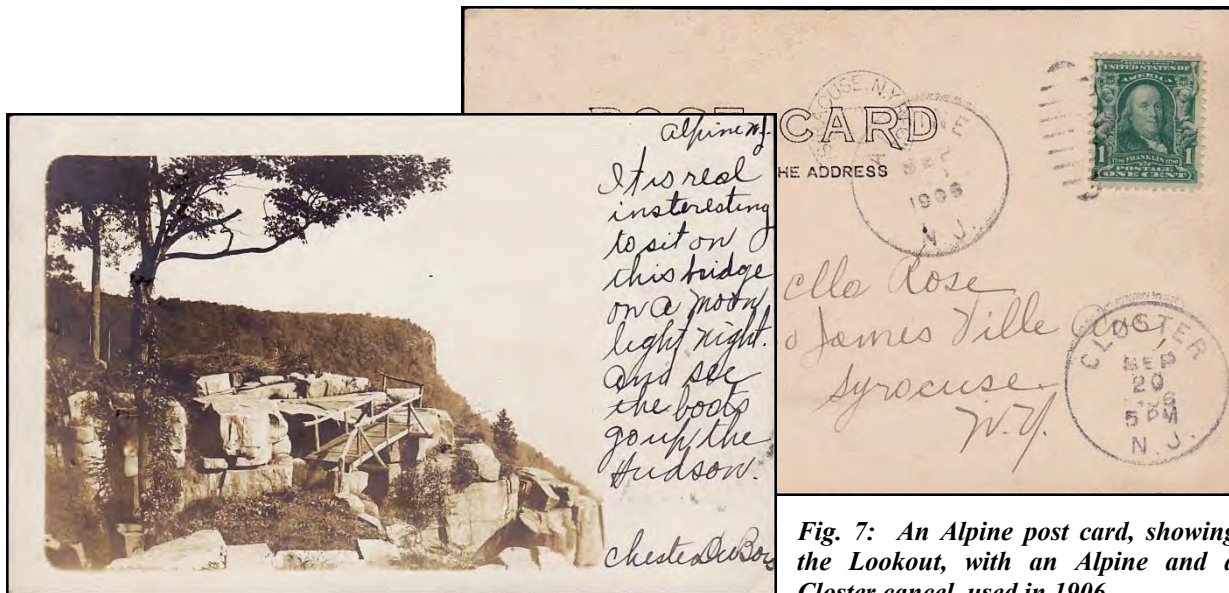 alpine N.J.
It is real
insteresting
to sit on
this bridge
on a moon
light night.
and see
the boats
go up the
Hudson.
Chester DuBois
CARD
HE ADDRESS
SEP
1906
N.J.
SERIES 1902
UNITED STATES OF
AMERICA
1 FRANKLIN 1
POSTAGE
ONE CENT
ella Rose
James Ville
Syracuse
N.Y.
CLOSTER
SEP
20
5 PM
N.J.
Fig. 7: An Alpine post card, showing
the Lookout, with an Alpine and a
Closter cancel, used in 1906